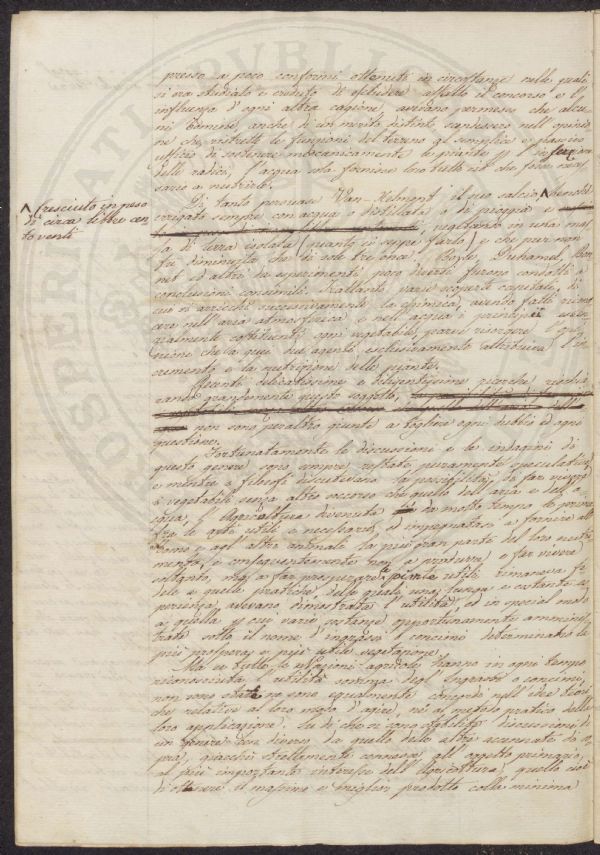 presso a poco conformi ottenuti in circostanze nelle quali
si era studiato e creduto di escludere affatto il concorso e l'
influenza d'ogni altra cagione, avevano permesso che alcu
ni uomini, anche di un merito distinto, cadessero nell'opinio
ne che ristretto le funzioni del terreno al semplice e passivo
ufficio di sostenere meccanicamente le piante, e l'
delle radici, l'acqua sola fornisse loro tutto ciò che fosse neces
sario a nutrirle.
Di tanto persuase Van-Helmont il suo salcio ^ benchè
^ cresciuto in peso
di circa libbre cen
to venti
irrigato sempre con acqua o distillata o di pioggia e
, vegetando in una mas
sa di terra isolata (quanto ei seppe farlo) e che pur non
fu diminuita che di sole tre once. Boyle, Duhamel, Bon
net ed altri da esperimenti poco diversi furono condotti a
conclusioni consimili. Frattanto varie scoperte capitali, di
cui si arricchì successivamente la chimica, avendo fatti ricono
scere nell'aria atmosferica e nell'acqua i principii essen
zialmente costituenti ogni vegetabile, parve risorgere l'opi
nione che a quei due agenti esclusivamente attribuiva l'in
cremento e la nutrizione delle piante.
Recenti delicatissime e diligentissime ricerche, rischia
rando grandemente questo soggetto,
non sono peraltro giunte a togliere ogni dubbio ed ogni
questione.
Fortunatamente le discussioni e le indagini di
questo genere sono sempre restate puramente speculative
e mentre i filosofi discutevano la possibilità di far vivere
i vegetabili senza altro soccorso che quello dell'aria e dell'a
cqua, l'Agricoltura divenuta da molto tempo la prima
fra le arti utili e necessarie, ed impegnata a fornire all'
uomo e agli altri animali la più gran parte del loro nutri
mento, e conseguentemente non a produrre e far vivere
soltanto, ma a far prosperare le piante utili, rimaneva fe
dele a quelle pratiche, delle quali una lunga e costante es
perienza avevano dimostrata l'utilità, ed in special modo
a quella per cui varie sostanze opportunamente ammini
strate sotto il nome d'ingrassi o concimi determinano la
più prospera e più utile vegetazione.
Ma se tutte le nazioni agricole hanno in ogni tempo
riconosciuta l'utilità somma degl'ingrassi o concimi,
non sono state nè sono egualmente concordi nell'idee teori
che relative al loro modo d'agire, nè al metodo pratico della
loro applicazione. Su di che si sono stabilite discussioni di
un genere ben diverso da quello delle altre accennate di so
pra, giacchè strettamente connesse all'oggetto primario,
al più importante interesse dell'Agricoltura, quello cioè
d'ottenere il massimo e miglior prodotto colla minima